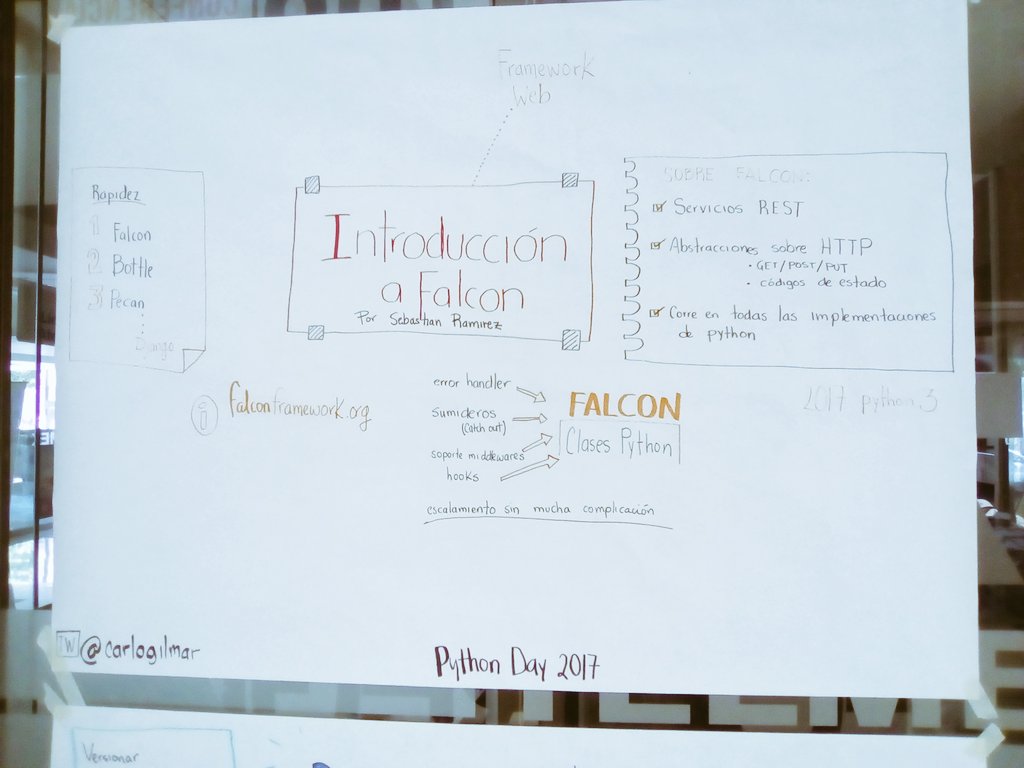 Framework
Web
Rapidez
1 Falcon
2 Bottle
3 Pecan
Django
Introducción
a Falcon
Por Sebastian Ramirez
SOBRE FALCON:
Servicios REST
Abstracciones sobre HTTP
• GET/POST/PUT
• códigos de estado
Corre en todas las implementaciones
de python
i falconframework.org
error handler
sumideros
(catch out)
soporte middlewares
hooks
FALCON
Clases Python
2017 python 3
escalamiento sin mucha complicación
TW @carlogilmar
Python Day 2017
Versionar